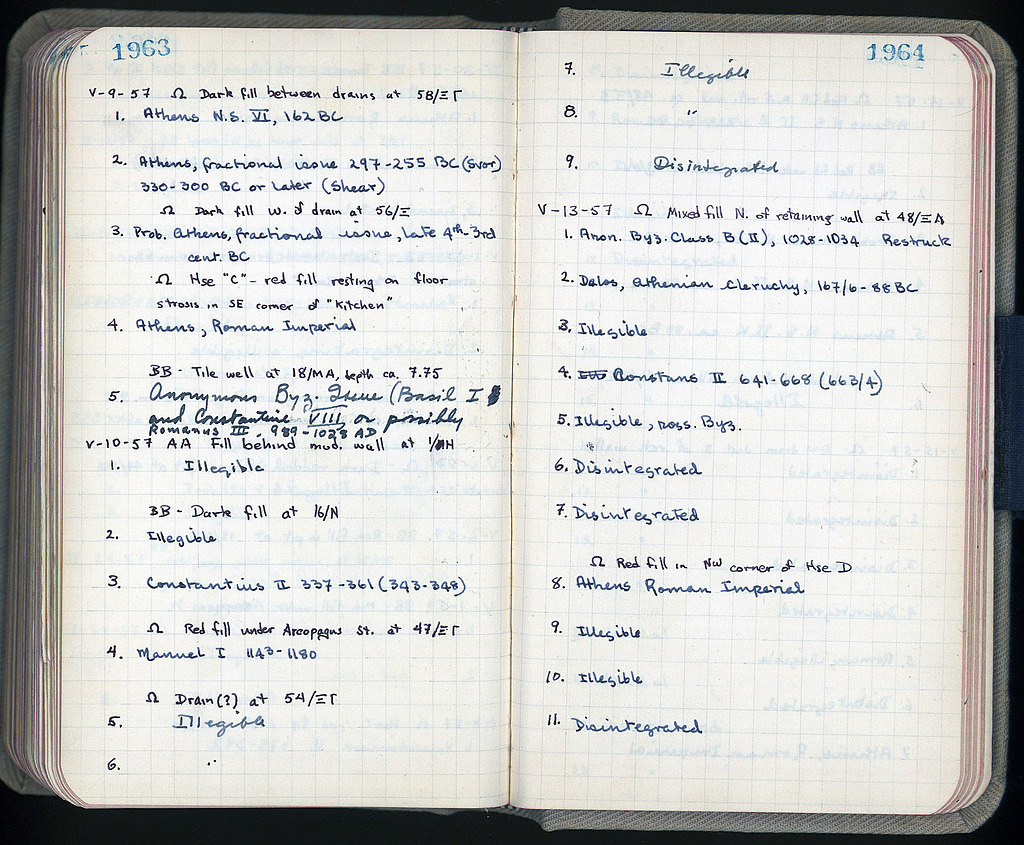 1963
V-9-57 Ω Dark fill between drains at 58/ΞΓ
1. Athens N.S. VI, 162 BC
2. Athens, fractional issue 297-255 BC (Svor)
330-300 BC or later (Shear)
Ω Dark fill W. of drain at 56/Ξ
3. Prob. Athens, fractional issue, late 4th-3rd
cent. BC
Ω Hse "C" - red fill resting on floor
strosis in SE corner of "Kitchen"
4. Athens, Roman Imperial
BB - Tile well at 18/MA, depth ca. 7.75
5. Anonymous Byz. Issue (Basil I
and Constantine VIII or possibly
Romanus III, 989-1028 AD
V-10-57 AA Fill behind mod. wall at
1. Illegible
BB - Dark fill at 16/N
2. Illegible
3. Constantius II 337-361 (343-348)
Ω Red fill under Areopagus St. at 47/ΞΓ
4. Manuel I 1143-1180
Ω Drain(?) at 54/ΞΓ
5. Illegible
6. "
1964
7. Illegible
8. "
9. Disintegrated
V-13-57 Ω Mixed fill N. of retaining wall at 48/ΞΑ
1. Anon. Byz. Class B (II), 1028-1034 Restruck
2. Delos, Athenian Cleruchy, 167/6-88 BC
3. Illegible
4. Constans II 641-668 (663/4)
5. Illegible, poss. Byz.
6. Disintegrated
7. Disintegrated
Ω Red fill in NW corner of Hse D
8. Athens Roman Imperial
9. Illegible
10. Illegible
11. Disintegrated